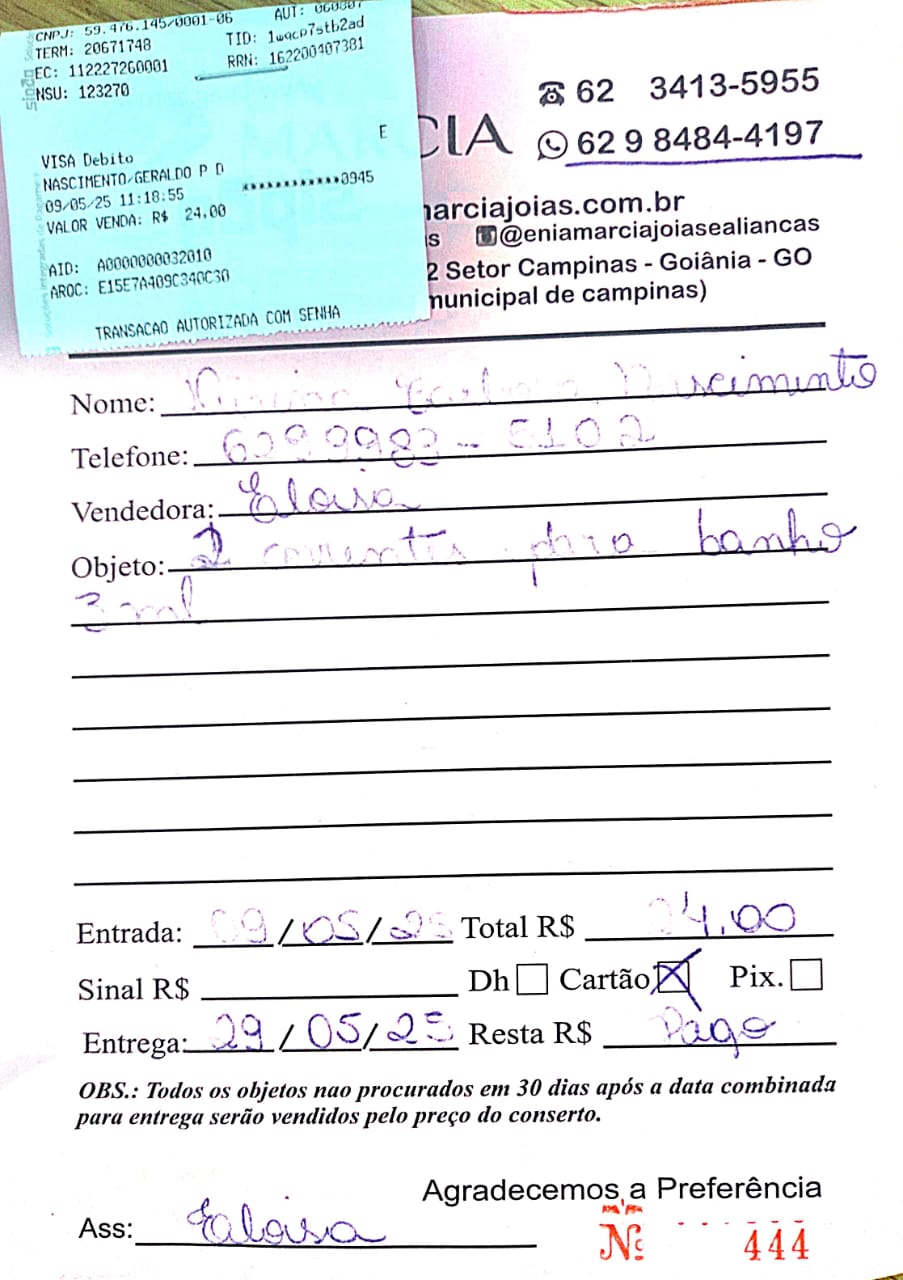 CNPJ: 59.476.145/0001-06 AUT: 060307
TERM: 20671748 TID: 1wacp7stb2ad
EC: 112227260001 RRN: 162200407381
NSU: 123270
E
VISA Debito
NASCIMENTO/GERALDO P D
************0945
09/05/25 11:18:55
VALOR VENDA: R$ 24,00
AID: A0000000032010
ARQC: E15E7A409C340C30
TRANSACAO AUTORIZADA COM SENHA
62 3413-5955
CIA 62 9 8484-4197
marciajoias.com.br
s @eniamarciajoiasealiancas
2 Setor Campinas - Goiânia - GO
municipal de campinas)
Nome: Nascimento
Telefone: 6299983-5102
Vendedora: Eloisa
Objeto: 2 correntes para banho
3 ml
Entrada: 09/05/25 Total R$ 24,00
Sinal R$ Dh Cartão X Pix.
Entrega: 29/05/25 Resta R$ Pago
OBS.: Todos os objetos nao procurados em 30 dias após a data combinada
para entrega serão vendidos pelo preço do conserto.
Agradecemos a Preferência
Ass: Eloisa
Nº 444